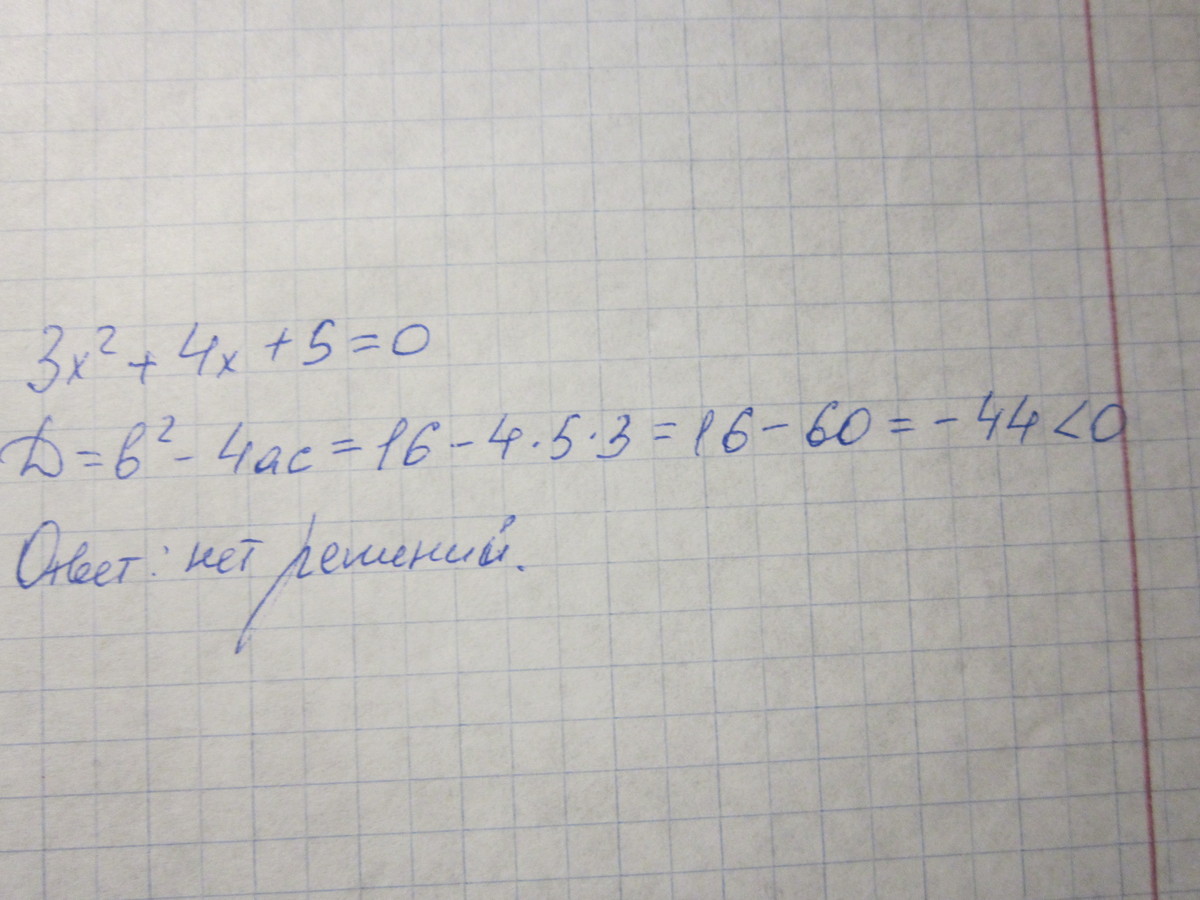 3x² + 4x + 5 = 0
D = b² - 4ac = 16 - 4·5·3 = 16 - 60 = -44 < 0
Ответ: нет решений.